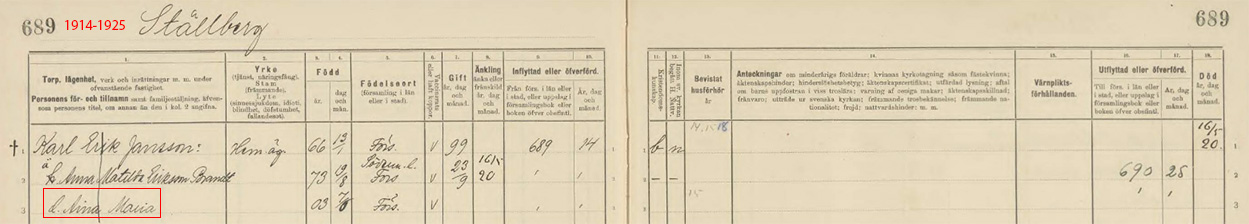 689 1914-1925 Ställberg 689
1. 2. 3. 4. 5. 6. 7. 8. 9. 10. 11. 12. 13. 14. 15. 16. 17. 18.
Torp, lägenhet, verk och inrättningar m. m. under
ofvanstående fastighet.
Personens för- och tillnamn samt familjeställning, äfvensom
personens titel, om annan än den i kol. 2 angifna.
Yrke
(tjänst, näringsfång).
Stam
(främmande).
Lyte
(sinnessjukdom, idioti,
blindhet, döfstumhet,
fallandesot).
Född
år.
dag
och
mån.
Födelseort
(församling i län
eller i stad).
Vaccinerad
eller haft koppor.
Gift
år, dag
och
månad.
Änkling
änka eller
frånskild
år, dag och
månad.
Inflyttad eller öfverförd.
Från förs. i län
eller i stad, eller
uppslag i
församlingsbok eller
boken öfver obefintl.
År, dag
och
månad.
Bevistat
husförhör
år
Anteckningar om minderårigs föräldrar; kvinnas kyrkotagning såsom fästekvinna;
äktenskapshinder; hindersfrihetsbetyg; äktenskapscertifikat; utfärdad lysning; aftal
om barns uppfostran i viss troslära; varning af oeniga makar; äktenskapsskillnad;
frånvaro; utträde ur svenska kyrkan; främmande trosbekännelse; främmande nationalitet;
frejd; nattvardshinder; m. m.
Värnplikts-
förhållanden.
Utflyttad eller öfverförd.
Till förs. i län eller
i stad, eller uppslag i
församlingsbok eller
boken öfver obefintl.
År, dag
och
månad.
Död
år, dag
och
månad.
† 1 Karl Erik Jansson: Hem.äg. 66 13/1 Förs. v 99 689 14 1 b n 14. 15 18 16/5 20. 1
2 h. Anna Matilda Erikson Brandt 73 19/8 Förs v 23/9 16/5 20 " " 2 – – 690 25 2
3 d. Aina Maria 03 7/8 Förs. v " " 3 15 " " 3